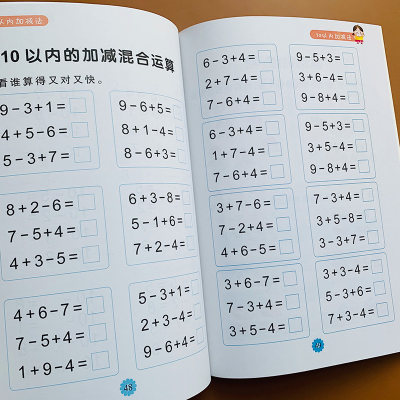 以内加减法
10 以内的加减混合运算
看谁算得又对又快。
9-3+1=
4+5-6=
5-3+7=
9-6+5=
8+1-4=
8-6+3=
8+2-6=
7-5+4=
4+3-5=
6+3-8=
5-1+6=
7+2-4=
4+6-7=
7-5+4=
1+9-4=
5-3+1=
2+3-4=
9-6+4=
48
10以内加减法
6-3+4=
2+7-4=
7-6+4=
9-5+3=
3+6-4=
9-8+4=
6-3+4=
1+7-4=
7-6+4=
9-5+3=
3+5-4=
9-8+4=
3+7-6=
7-2+4=
4+6-5=
7-3+4=
3+5-8=
3-3+7=
3+6-7=
7-3+4=
3+5-4=
3+3-4=
5-3+6=
7+3-4=